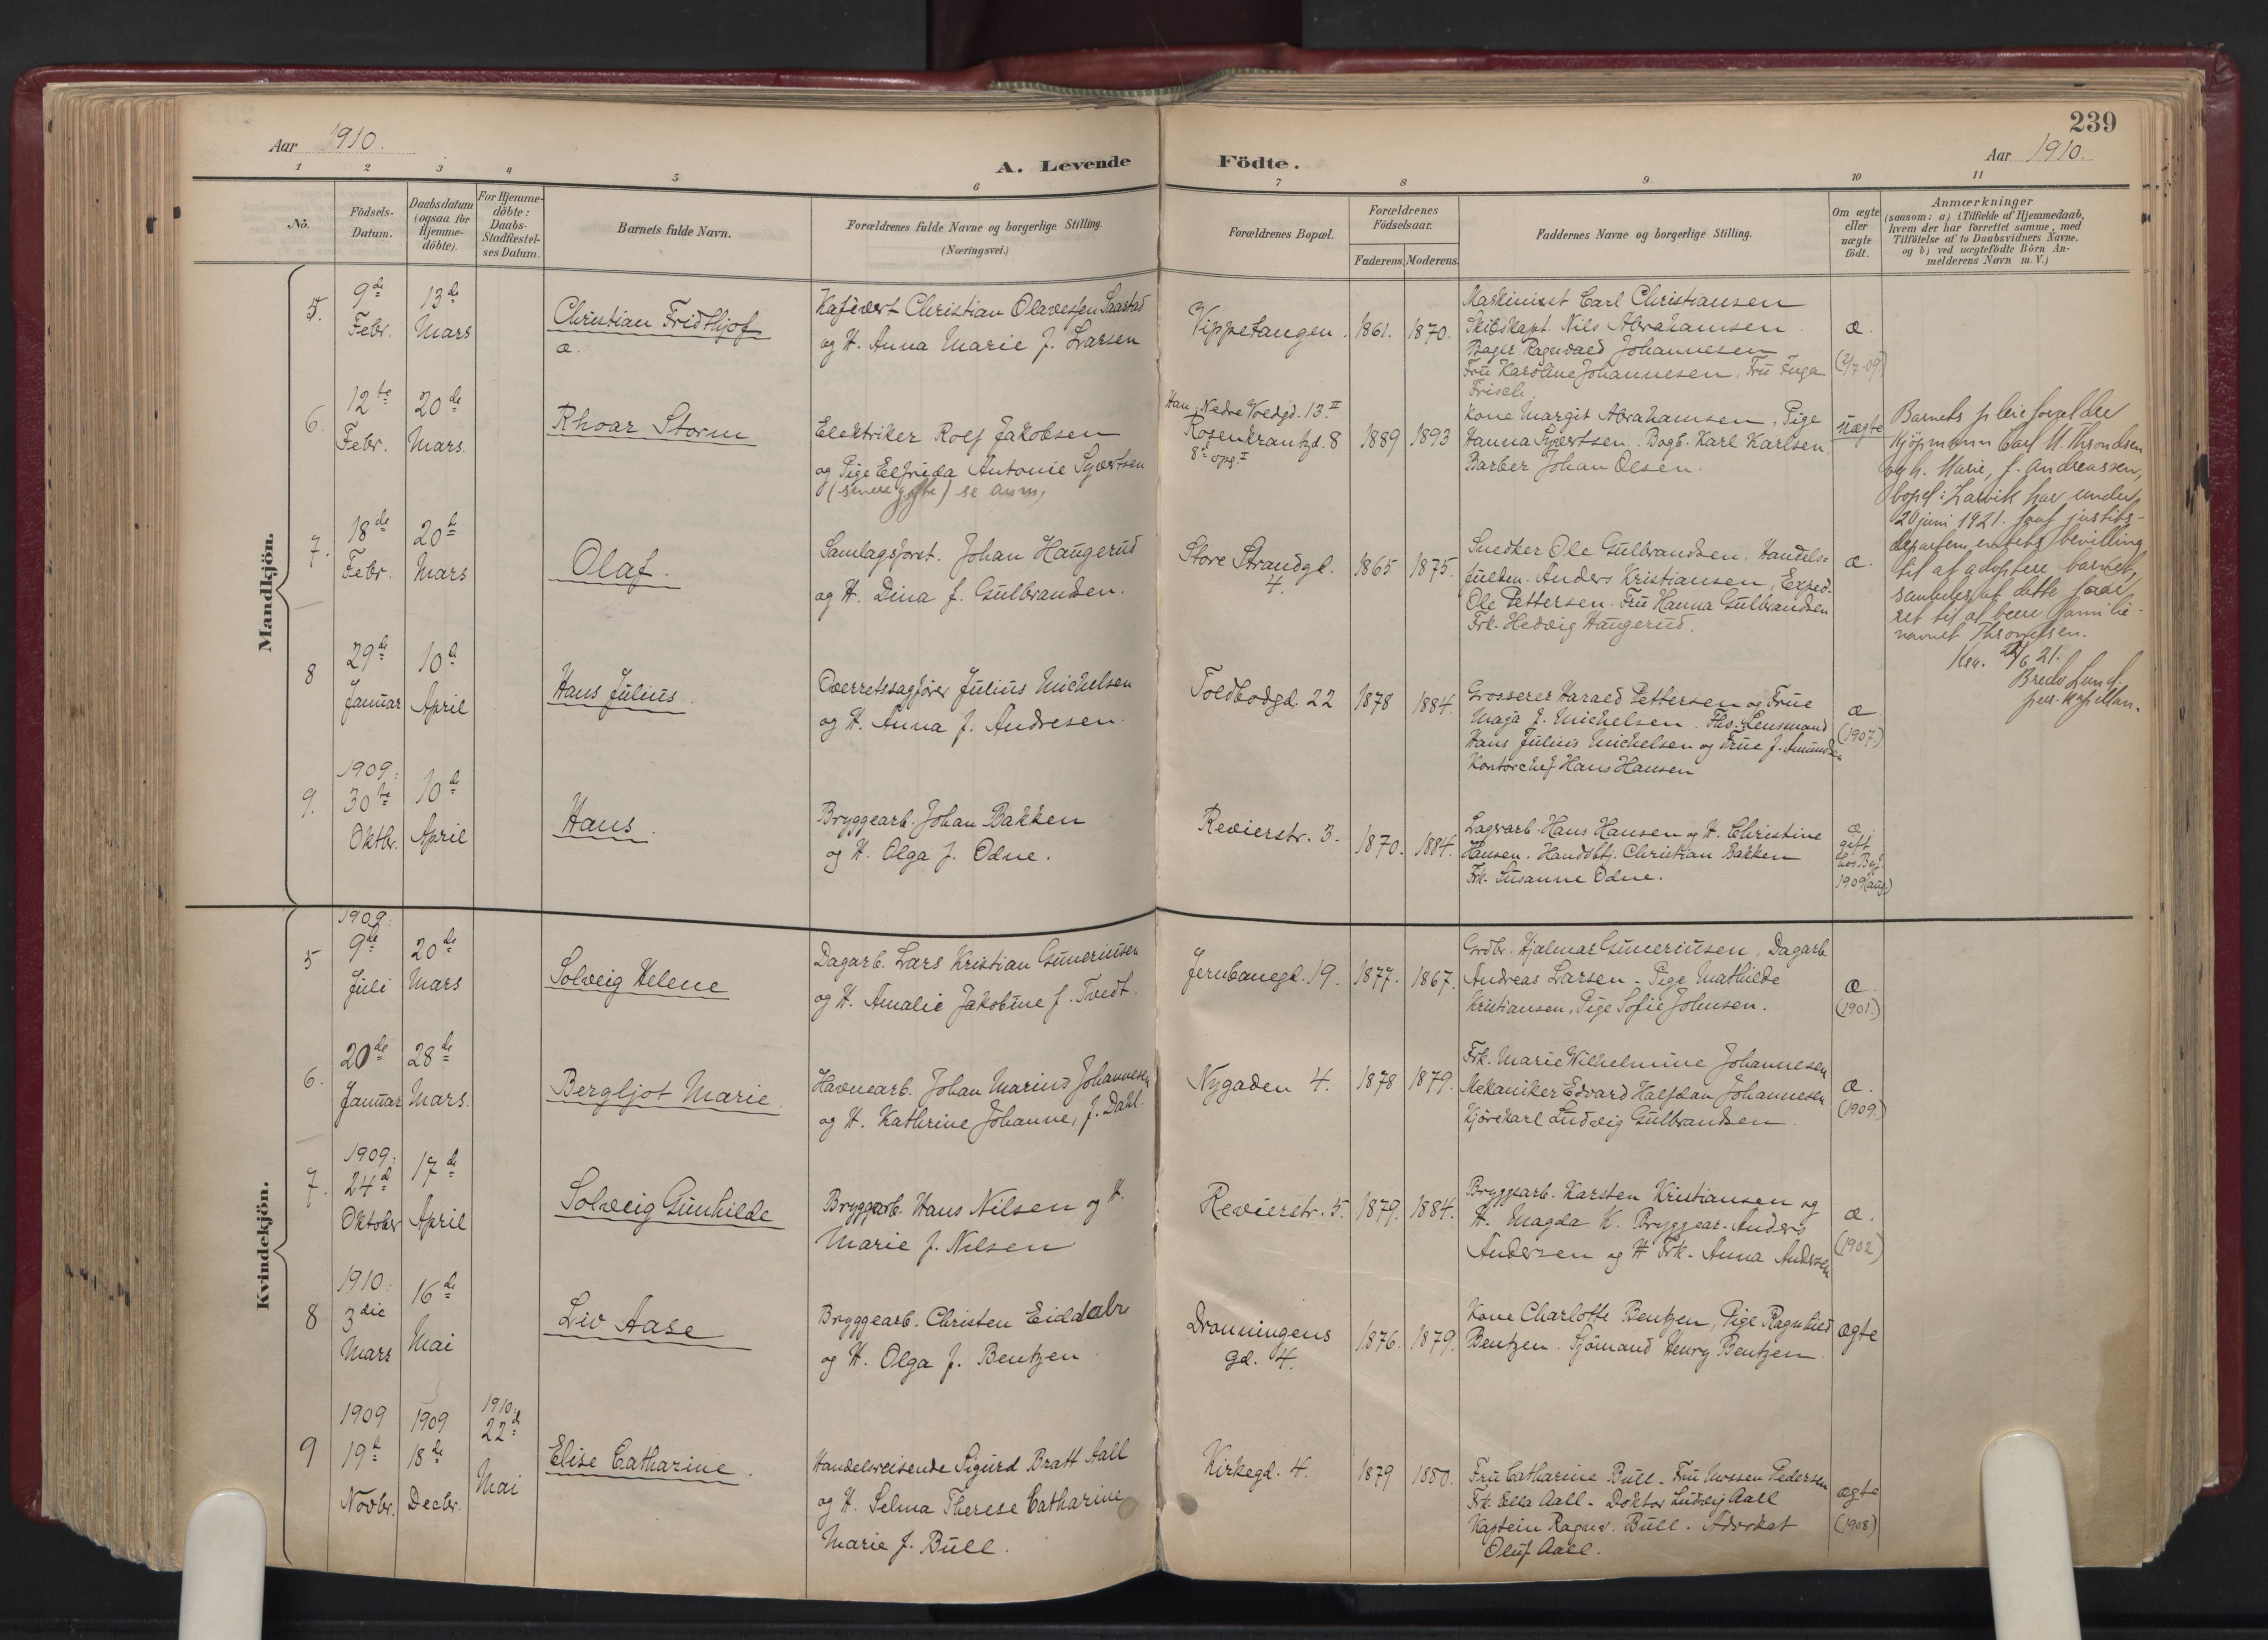 239
Aar 1910.
A. Levende Födte.
Aar 1910.
1 2 3 4 5 6 7 8 9 10 11
No.
Födsels-
Datum.
Daabsdatum
(ogsaa for
Hjemme-
döbte).
For Hjemme-
döbte:
Daabs-
Stadfæstel-
ses Datum.
Barnets fulde Navn.
Forældrenes fulde Navne og borgerlige Stilling.
(Næringsvei.)
Forældrenes Bopæl.
Forældrenes
Födselsaar.
Faderens. Moderens.
Faddernes Navne og borgerlige Stilling.
Om ægte
eller
uægte
födt.
Anmærkninger
(saasom: a) i Tilfælde af Hjemmedaab,
hvem der har forrettet samme, med
Tilföielse af to Daabsvidners Navne,
og b) ved uægtefödte Börn An-
melderens Navn m. V.)
Mandkjön.
5.
9de
Febr.
13de
Mars
Christian Fridthjof
æ.
Kafévært Christian Olavessen Saastad
og H. Anna Marie f. Larsen
Vippetangen.
1861. 1870.
Maskinist Carl Christiansen
Skibskapt. Nils Abrahamsen
Bager Ragnvald Johannesen
Fru Karoline Johannesen, Fru Inga
Frisch
æ.
(2/7-09)
6.
12te
Febr.
20de
Mars.
Rhoar Storm
Elektriker Rolf Jakobsen
og Pige Elfrida Antonie Syvertsen
(senere gifte) se anm,
Han, Nedre Voldgd. 13.II
Rosenkrantzd. 8
8de opg. I
1889 1893
Kone Margit Abrahamsen, Pige
Hanna Syvertsen, Bogb. Karl Karlsen
Barber Johan Olsen.
uægte
Barnets pleieforældre
kjöpmann Carl M. Throndsen
og h. Marie, f. Andreassen,
bopel: Larvik har under
20 juni 1921. faat justits-
departementets bevilling
til at adoptere barnet,
samt at dette faar
ret til at bære familie-
navnet Throndsen.
Kra. 22/6 21.
Bredo Lund.
pers. kapellan.
7.
18de
Febr.
20de
Mars
Olaf.
Samlagsforet. Johan Haugerud
og H. Dina f. Gulbrandsen.
Store Strandgd.
4.
1865 1875.
Snedker Ole Gulbrandsen, Handels-
fuldm. Anders Kristiansen, Exped.
Ole Pettersen. Fru Hanna Gulbrandsen
Frk. Hedvig Haugerud.
æ.
8
29de
Januar
10de
April
Hans Julius.
Overretssagfører Julius Michelsen
og H. Anna f. Andresen.
Toldbodgd. 22
1878 1884.
Grosserer Harald Pettersen og Frue
Maja f. Michelsen. Fhv. Lensmand
Hans Julius Michelsen og Frue f. Amundsen
Kontorchef Hans Hansen
æ
(1907.)
9.
1909:
30te
Oktbr.
10de
April
Hans.
Bryggearb. Johan Bakken
og H. Olga f. Odne.
Revierstr. 3.
1870. 1884.
Lagerarb. Hans Hansen og H. Christine
Hansen. Handsbtj. Christian Bakken
Frk. Susanne Odne.
æ
gift
hos Byf.
1909(aug.)
Kvindekjön.
5
1909:
9de
Juli
20de
Mars
Solveig Helene
Dagarb. Lars Kristian Guneriussen
og H. Amalie Jakobine f. Tvedt.
Jernbanegd. 19.
1877. 1867.
Grdbr. Hjalmar Guneriusen, Dagarb.
Andreas Larsen - Pige Mathilde
Kristiansen, Pige Sofie Johnsen.
æ.
(1901.)
6.
20de
Januar
28de
Mars.
Bergljot Marie.
Havnearb. Johan Marius Johannesen
og H. Kathrine Johanne, f. Dahl.
Nygaden 4.
1878 1879.
Frk. Marie Wilhelmine Johannesen
Mekaniker Edvard Halfdan Johannesen
Kjørekarl Ludvig Gulbrandsen.
æ.
(1909.)
7.
1909:
24de
Oktober
17de
April
Solveig Gunhilde
Bryggarb. Hans Nilsen og H.
Marie f. Nilsen
Revierstr. 5.
1879. 1884.
Bryggearb. Karsten Kristiansen og
H. Magda K. Bryggear. Anders
Andersen og H Frk. Anna Andersen
æ.
(1902)
8
1910:
3die
Mars
16de
Mai
Liv Aase
Bryggearb. Christen Eiddalen
og H. Olga f. Bentzen
Dronningens
gd. 4.
1876. 1879.
Kone Charlotte Bentzen, Pige Ragnhild
Bentzen. Sjömand Henry Bentzen.
ægte
9
1909
19de
Novbr.
1909
18de
Decbr.
1910:
22de
Mai
Elise Catharine.
Handelsreisende Sigurd Bratt Aall
og H. Selma Therese Catharine
Marie f. Bull.
Kirkegd. 4.
1879 1880.
Fru Catharine Bull - Fru Pedersen
Frk. Ella Aall - Doktor Ludvig Aall
Kaptein Ragnv. Bull. Advokat
Oluf Aall.
ægte
(1908)